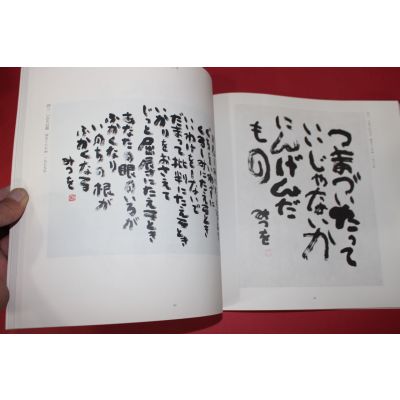 つまづいたって
いいじゃないか
にんげんだ
もの
みつを
くるしみにたえるとき
いいわけをしないで
だまって批判にたえるとき
いかりをおさえて
じっと屈辱にたえるとき
あなたの眼のいろが
ふかくなり
いのちの根が
ふかくなる
みつを